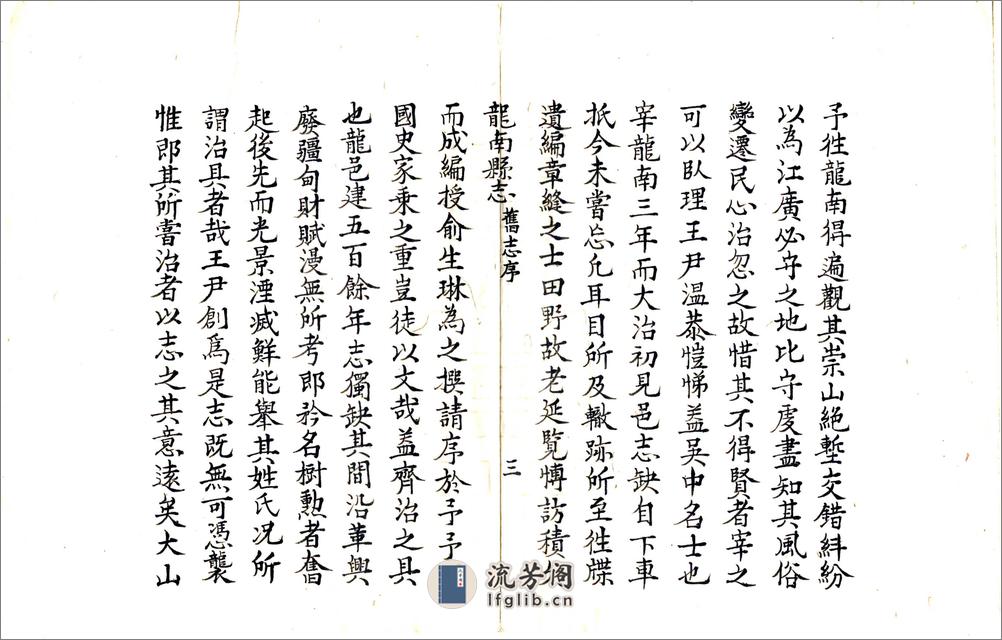 予徃龍南得遍觀其崇山絶壑交錯紏紛
以為江廣必守之地比守虔盡知其風俗
變遷民心治忽之故惜其不得賢者宰之
可以臥理王尹温恭愷悌盖吴中名士也
宰龍南三年而大治初見邑志缺自下車
抵今未嘗忘凢耳目所及轍跡所至徃牒
遺編章縫之士田野故老延覽愽訪積久
龍南縣志 舊志序 三
而成編授俞生琳為之撰請序於予予
國史家乘之重豈徒以文哉盖齊治之具
也龍邑建五百餘年志獨缺其間沿革興
廢疆甸財賦漫無所考即矜名樹勲者奮
起後先而光景湮滅鮮能舉其姓氏况所
謂治具者哉王尹創爲是志既無可憑襲
惟即其所嘗治者以志之其意遠矣大山
流芳阁
lfglib.cn